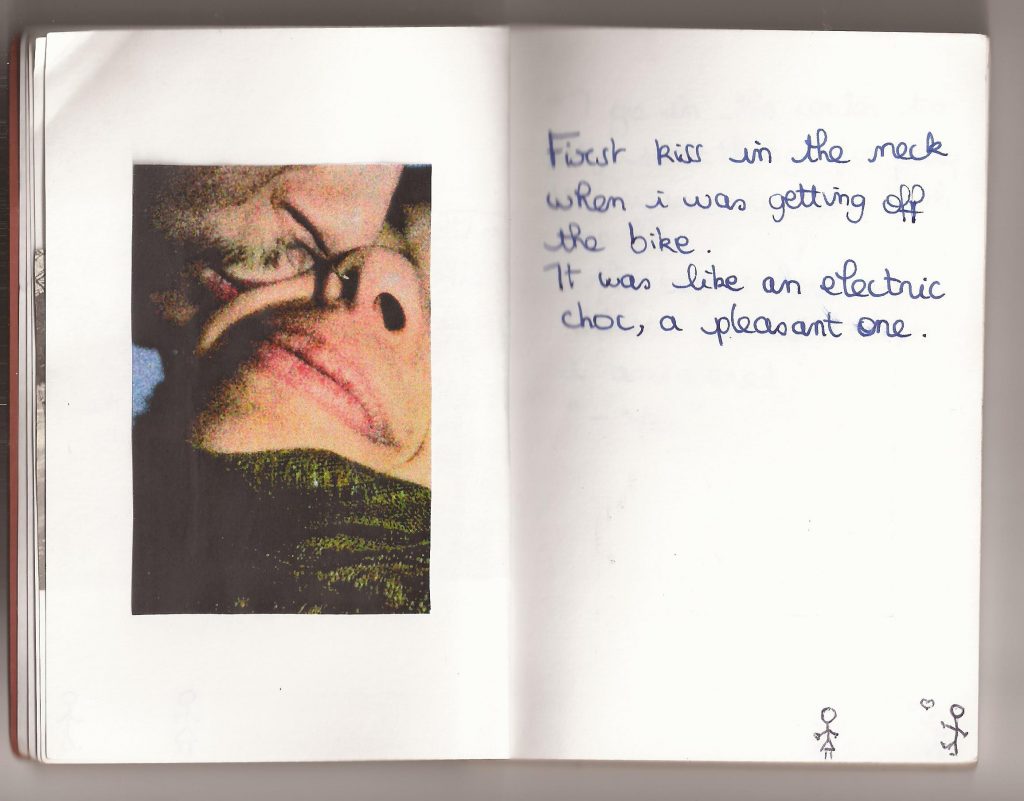 First kiss in the neck
when i was getting off
the bike.
It was like an electric
choc, a pleasant one.